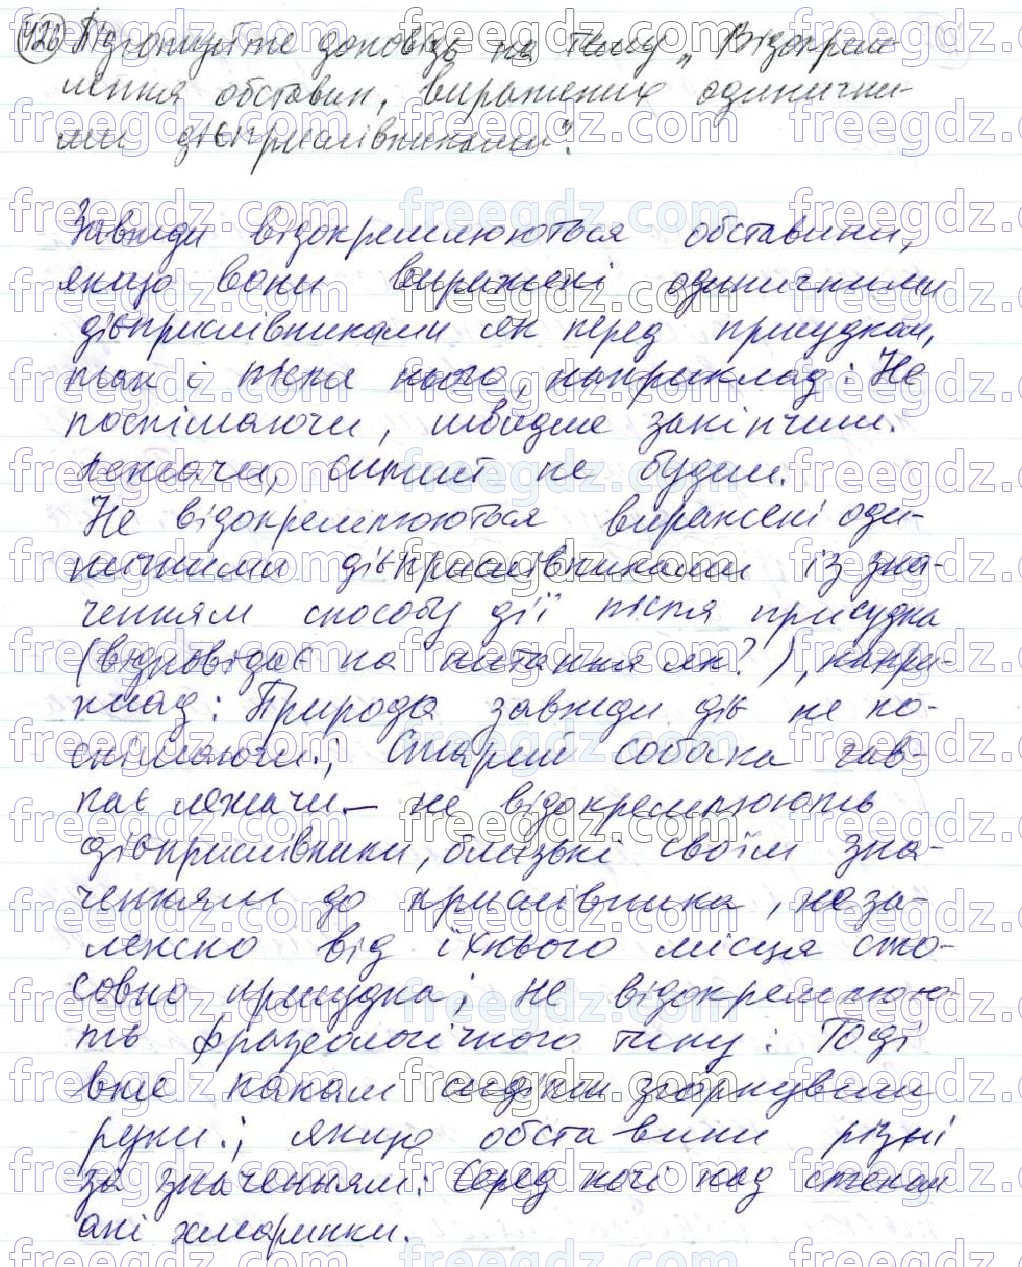 426 Підготуйте доповідь на тему „Відокрем-
лення обставин, виражених одинични-
ми дієприслівниками".
Завжди відокремлюються обставини,
якщо вони виражені одиничними
дієприслівниками як перед присудком,
так і після нього, наприклад: Не
поспішаючи, швидше закінчиш.
Лежачи, ситий не будеш.
Не відокремлюються виражені оди-
ничними дієприслівниками із зна-
ченням способу дії після присудка
(відповідає на питання як?), напри-
клад: Природа завжди діє не по-
спішаючи.; Старий собака гав-
кає лежачи. – не відокремлюють
дієприслівники, близькі своїм зна-
ченням до прислівника, неза-
лежно від їхнього місця сто-
совно присудка; не відокремлюю-
ть фразеологічного типу: Тоді
вже панам сидіти згорнувши
руки.; якщо обставини різні
за значенням: Серед ночі над степом
ані хмаринки.
freegdz.com